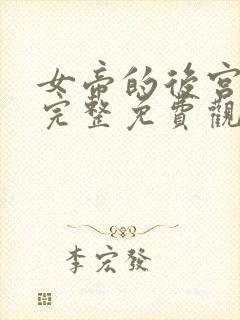 女帝的後宮
完整免費觀
李宏發